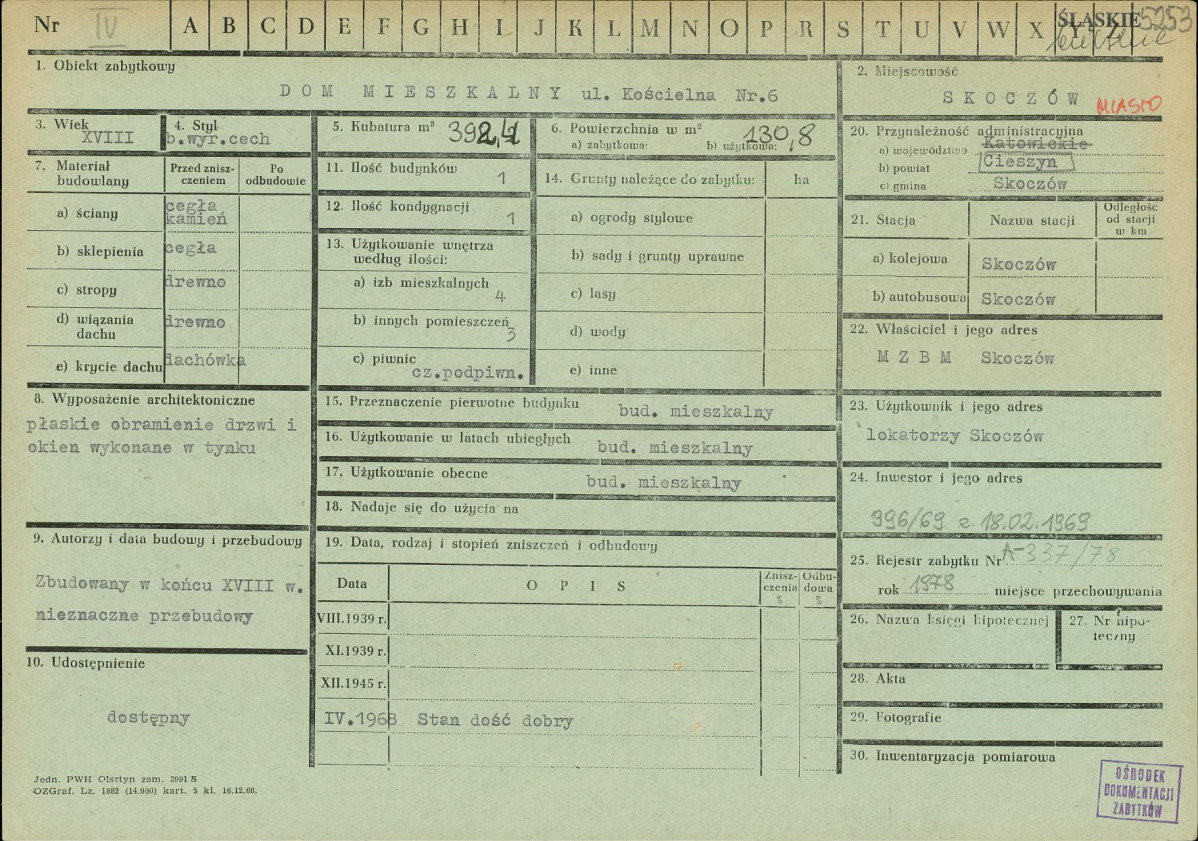 Nr IV A B C D E F G H I J K L M N O P R S T U V W X Y Z ŚLĄSKIE 5253
1. Obiekt zabytkowy
DOM MIESZKALNY ul. Kościelna Nr.6
2. Miejscowość
SKOCZÓW MIASTO
3. Wiek
XVIII
4. Styl
b.wyr.cech
5. Kubatura m³ 392,4
6. Powierzchnia w m² 130,8
a) zabytkowa: b) użytkowa:
7. Materiał budowlany
Przed znisz-
czeniem
Po
odbudowie
a) ściany cegła
kamień
b) sklepienia cegła
c) stropy drewno
d) wiązania
dachu drewno
e) krycie dachu dachówka
8. Wyposażenie architektoniczne
płaskie obramienie drzwi i
okien wykonane w tynku
9. Autorzy i data budowy i przebudowy
Zbudowany w końcu XVIII w.
nieznaczne przebudowy
10. Udostępnienie
dostępny
11. Ilość budynków 1
12. Ilość kondygnacji 1
13. Użytkowanie wnętrza
według ilości:
a) izb mieszkalnych 4
b) innych pomieszczeń 3
c) piwnic
cz.podpiwn.
14. Grunty należące do zabytku: ha
a) ogrody stylowe
b) sady i grunty uprawne
c) lasy
d) wody
e) inne
15. Przeznaczenie pierwotne budynku bud. mieszkalny
16. Użytkowanie w latach ubiegłych bud. mieszkalny
17. Użytkowanie obecne bud. mieszkalny
18. Nadaje się do użycia na
19. Data, rodzaj i stopień zniszczeń i odbudowy
Data OPIS Znisz-
czenia
% Odbu-
dowa
%
VIII.1939 r.
XI.1939 r.
XII.1945 r.
IV.1968 Stan dość dobry
20. Przynależność administracyjna
a) województwo Katowickie
b) powiat Cieszyn
c) gmina Skoczów
21. Stacja Nazwa stacji Odległość
od stacji
w km
a) kolejowa Skoczów
b) autobusowa Skoczów
22. Właściciel i jego adres
MZBM Skoczów
23. Użytkownik i jego adres
lokatorzy Skoczów
24. Inwestor i jego adres
996/69 z 18.02.1969
25. Rejestr zabytku Nr A-337/78
rok 1978 miejsce przechowywania
26. Nazwa księgi hipotecznej
27. Nr hipo-
teczny
28. Akta
29. Fotografie
30. Inwentaryzacja pomiarowa
Jedn. PWH Olsztyn zam. 3991 S
OZGraf. Lz. 1882 (14.000) kart. 5 kl. 16.12.66.
OŚRODEK
DOKUMENTACJI
ZABYTKÓW